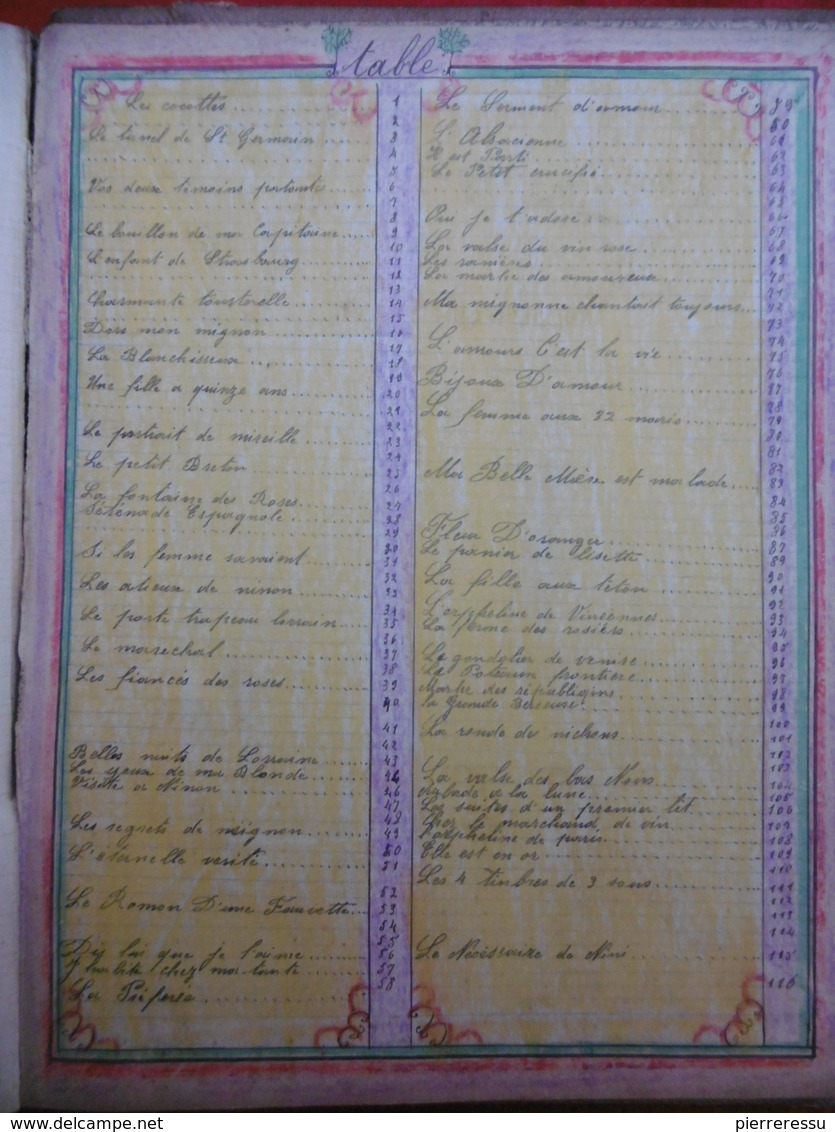 table
Les cocottes 1
2
Le tunel de St Germain 3
4
5
Vos deux témoins partants 6
7
8
Le bouillon de mon Capitaine 9
10
L'enfant de Strasbourg 11
12
13
Charmante tourterelle 14
15
Dors mon mignon 16
La Blanchisseuse 17
18
19
Une fille a quinze ans 20
21
22
Le portrait de mireille 23
24
Le petit Breton 25
26
La fontaine des Roses 27
Sérénade Espagnole 28
29
30
Si les femme savaient 31
32
Les adieux de ninon 33
34
Le porte trapeau lorrain 35
36
Le marechal 37
38
Les fiancés des roses 39
40
41
42
Belles nuits de Lorraine 43
Les yeux de ma Blonde 44
Visite a Ninon 46
47
48
Les regrets de mignon 49
50
L'éternelle verité 51
52
Le Roman D'une Fauvette 53
54
55
Dis lui que je l'aime 56
J'habite chez ma tante 57
58
La
Le Serment d'amour 59
60
L'Alsacienne 61
Il est Parti 62
Le Petit crucifié 63
64
65
Oui je t'adore 66
67
La valse du vin rose 68
Les 69
La martie des amoureux 70
71
Ma mignonne chantait toujours 72
73
74
L'amours C'est la vie 75
76
Bijoux D'amour 77
78
La femme aux 32 maris 79
80
81
82
Ma Belle Mère est malade 83
84
85
Fleur D'oranger 86
Le panier de lisette 87
89
La fille aux téton 90
91
92
L'orpheline de Vincennes 93
La ferme des rosiers 94
95
Le gondolier de venise 96
La frontiere 97
98
La Grande Berceuse 99
100
La ronde des nichons 101
102
La valse des bas Noirs 103
Aubade a la lune 104
Les suites d'un premier lit 105
Chez le marchand de vin 106
L'orpheline de paris 107
108
Elle est en or 109
110
Les 4 timbres de 3 sous 111
112
113
114
Le Nécéssaire de Nini 115
116
delcampe.net
pierreressu